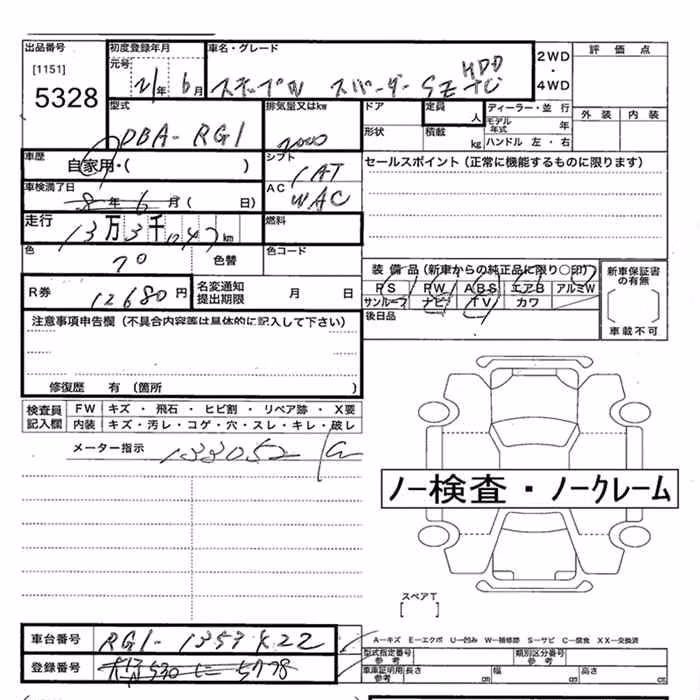 出品番号
[1151]
5328
初度登録年月
元号
21年 6月
車名・グレード
ステップW スパーダー SZ HDD TC
2WD・4WD
評価点
外装 内装
型式
DBA-RG1
排気量又はkw
2000
ドア
形状
定員
人
積載
kg
ディーラー・並行
モデル年式 年
ハンドル 左・右
車歴
自家用・( )
シフト
IAT
AC
WAC
セールスポイント(正常に機能するものに限ります)
車検満了日
8年6月( 日)
走行
13万3千 km
燃料
色
色替
色コード
R券
12680円
名変通知提出期限 月 日
装備品(新車からの純正品に限り○印)
PS PW ABS エアB アルミW
サンルーフ ナビ TV カワ
後日品
新車保証書の有無
車載不可
注意事項申告欄(不具合内容等は具体的に記入して下さい)
修復歴 有(箇所 )
検査員記入欄
FW キズ・飛石・ヒビ割・リペア跡・X要
内装 キズ・汚レ・コゲ・穴・スレ・キレ・破レ
メーター指示 133052
ノー検査・ノークレーム
スペアT
[ ]
車台番号
RG1-
登録番号
530 5778
A-キズ E-エクボ U-凹み W-補修跡 S-サビ C-腐食 XX-交換済
型式指定番号 参考
類別区分番号 参考
車庫証明用 参考
長さ cm 幅 cm 高さ cm